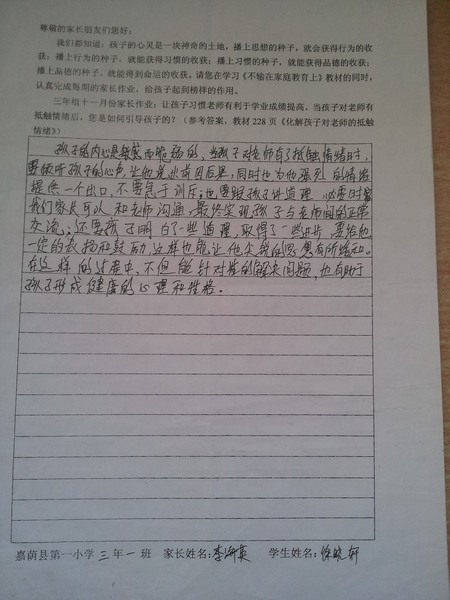 尊敬的家长朋友们您好：
我们都知道，孩子的心灵是一块神奇的土地，播上思想的种子，就会获得行为的收
获；播上行为的种子，就能获得习惯的收获；播上习惯的种子，就能获得品德的收获；
播上品德的种子，就能得到命运的收获。请您在学习《不输在家庭教育上》教材的同时，
认真完成每期的家长作业，给孩子起到榜样的作用。
三年组十一月份家长作业：让孩子习惯老师有利于学业成绩提高。当孩子对老师有
抵触情绪后，您是如何引导孩子的？（参考答案，教材 228 页《化解孩子对老师的抵触
情绪》）
孩子的内心是敏感而脆弱的，当孩子对老师有了抵触情绪时，
要倾听孩子的心声，让他说出前因后果，同时也为他强烈的情绪
提供一个出口，不要急于训斥；也要跟孩子讲道理，必要时
我们家长可以和老师沟通，最终实现孩子与老师间的正常
交流；还要孩子明白了一些道理，取得了一些进步，要给他
一些的表扬和鼓励，这样也能让他尖锐的思想有所缓和。
在这样的过程中，不但能针对性的解决问题，也有助于
孩子形成健康的心理和性格。
嘉荫县第一小学 三 年 一 班 家长姓名：李 英 学生姓名：徐晓轩